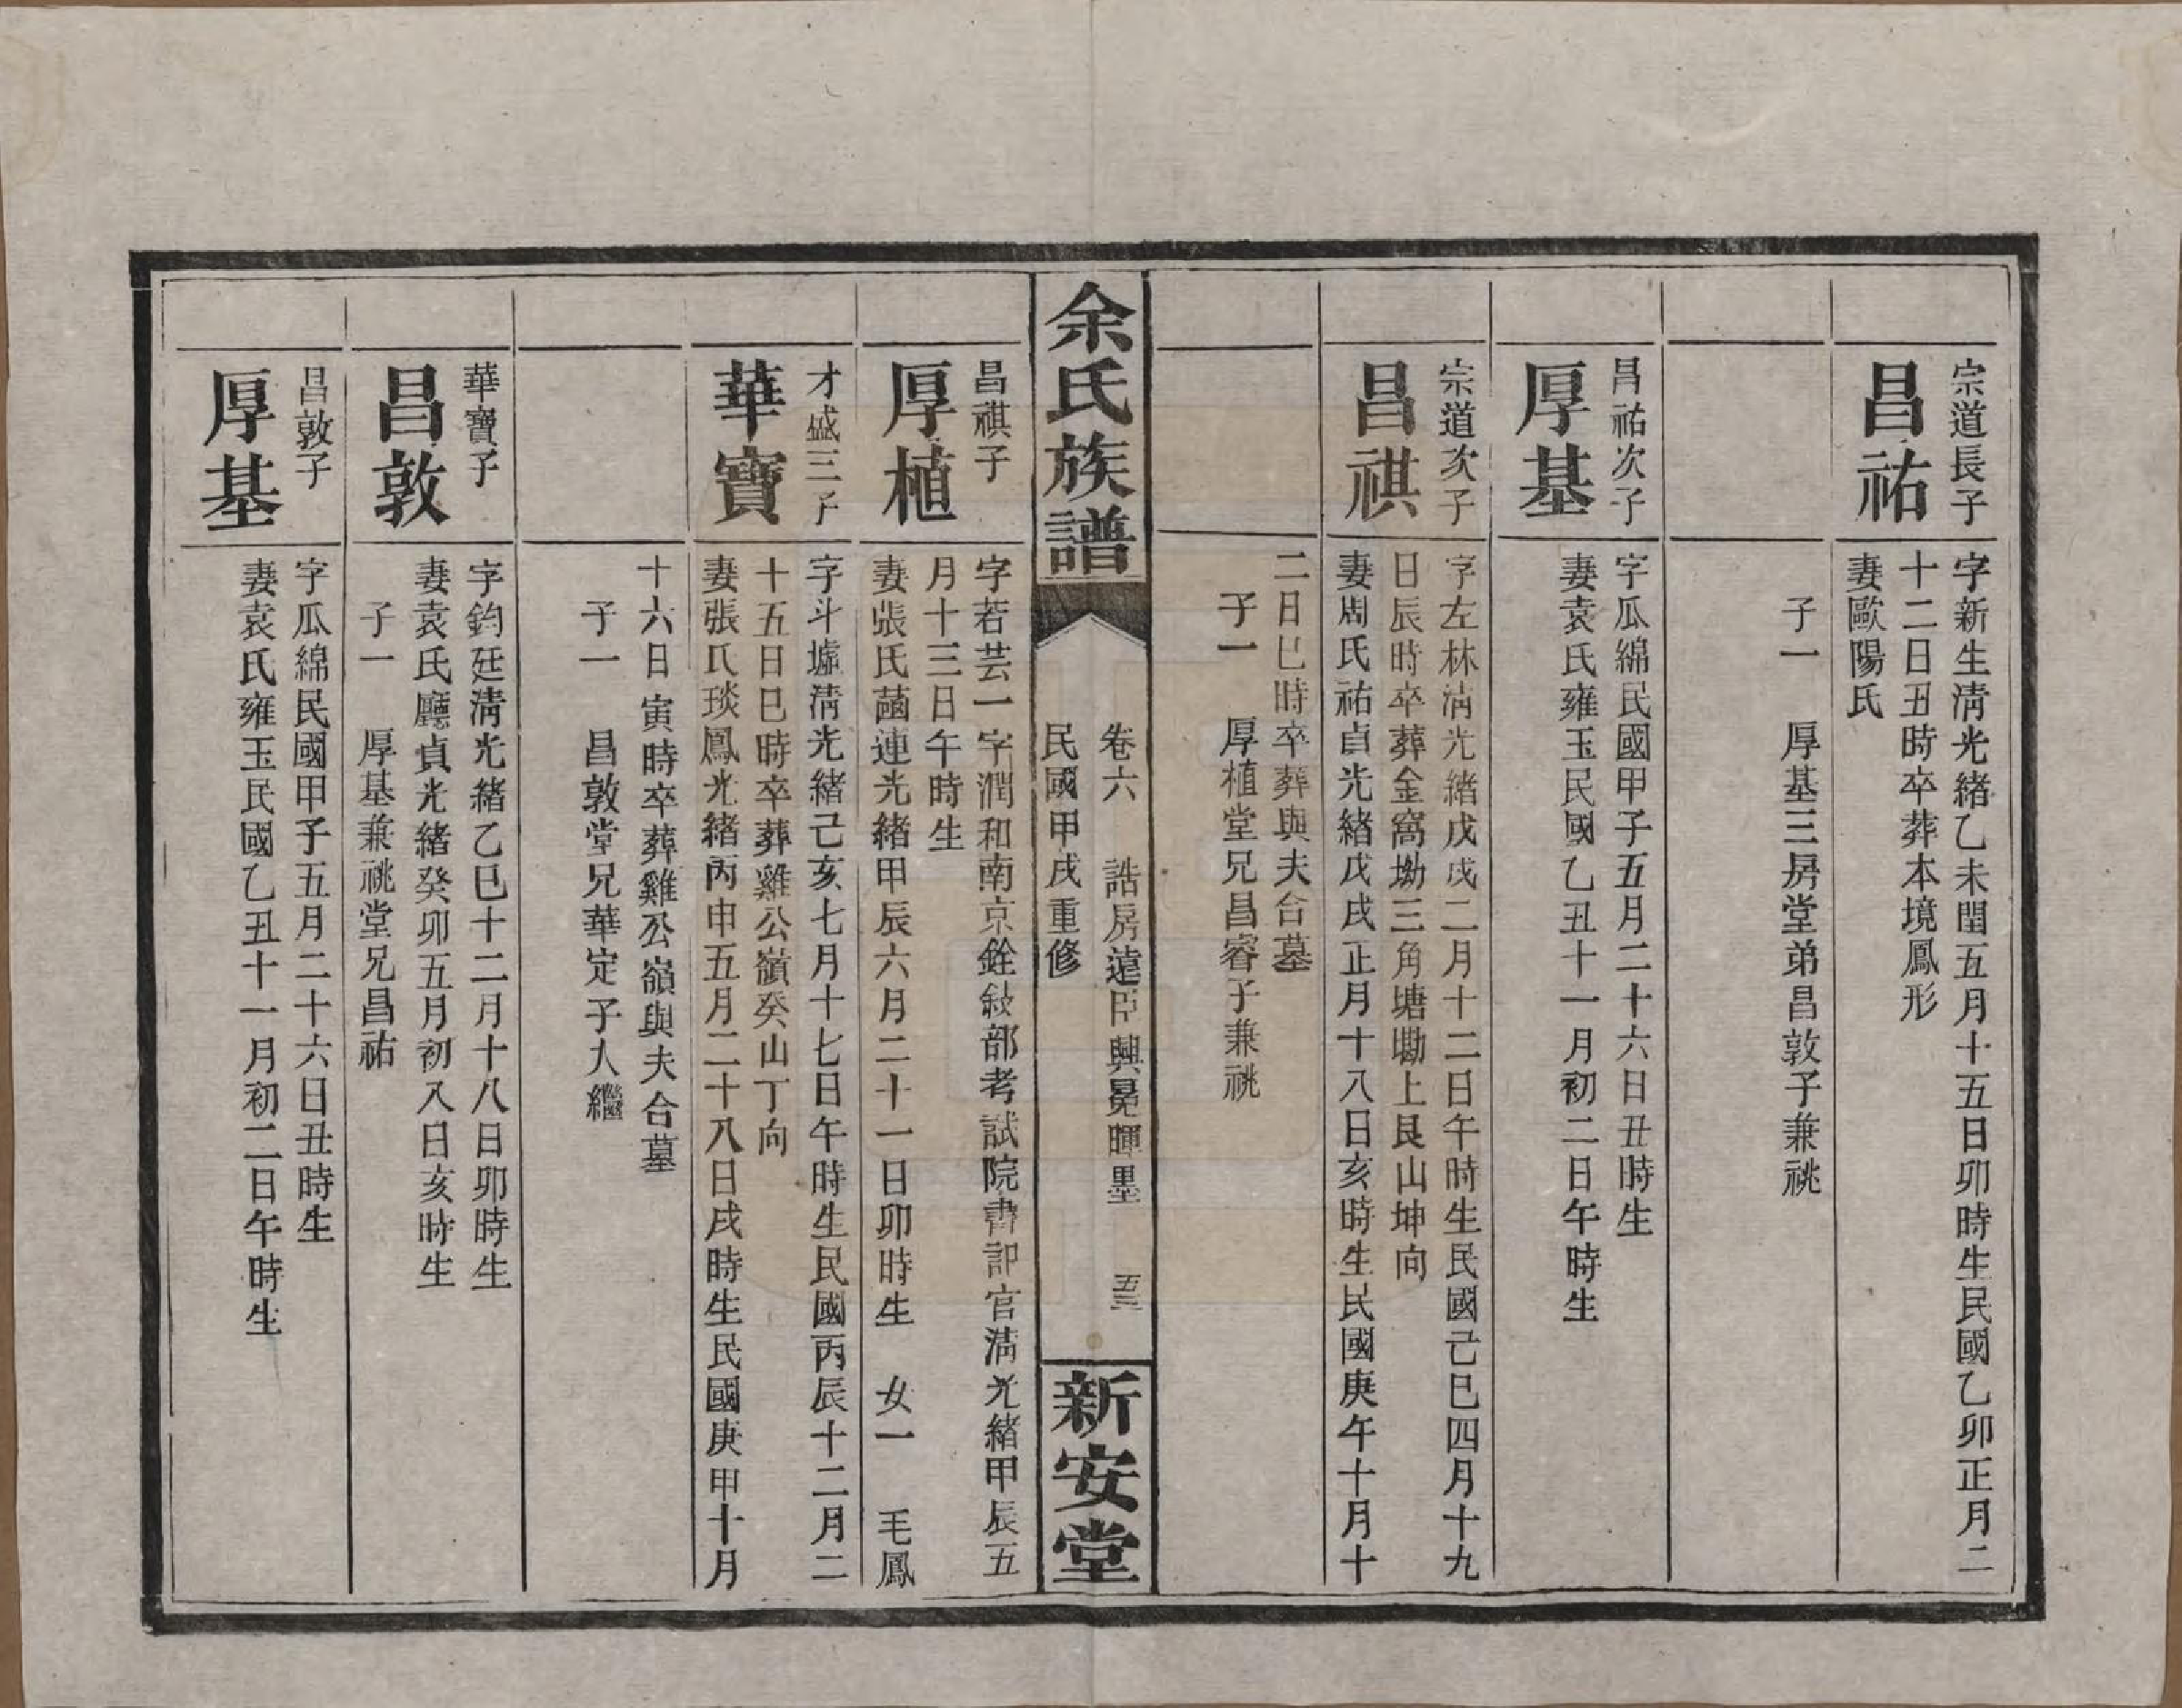 宗道長子
昌祐
字新生清光緒乙未閏五月十五日卯時生民國乙卯正月二
十二日丑時卒葬本境鳳形
妻歐陽氏
子一　厚基三房堂弟昌敦子兼祧
昌祐次子
厚基
字瓜綿民國甲子五月二十六日丑時生
妻袁氏雍玉民國乙丑十一月初二日午時生
宗道次子
昌祺
字左林清光緒戊戌二月十二日午時生民國己巳四月十九
日辰時卒葬金窩坳三角塘墈上艮山坤向
妻周氏祐貞光緒戊戌正月十八日亥時生民國庚午十月十
二日巳時卒葬與夫合墓
子一　厚植堂兄昌睿子兼祧
余氏族譜
卷六　誥房遠臣興晃暉墨　五三
民國甲戌重修
新安堂
昌祺子
厚植
字若芸一字潤和南京銓敍部考試院書記官清光緒甲辰五
月十三日午時生
妻張氏菡連光緒甲辰六月二十一日卯時生　女一　毛鳳
才盛三子
華寶
字斗墟清光緒己亥七月十七日午時生民國丙辰十二月二
十五日巳時卒葬雞公嶺癸山丁向
妻張氏琰鳳光緒丙申五月二十八日戌時生民國庚申十月
十六日寅時卒葬雞公嶺與夫合墓
子一　昌敦堂兄華定子入繼
華寶子
昌敦
字鈞廷清光緒乙巳十二月十八日卯時生
妻袁氏廳貞光緒癸卯五月初八日亥時生
子一　厚基兼祧堂兄昌祐
昌敦子
厚基
字瓜綿民國甲子五月二十六日丑時生
妻袁氏雍玉民國乙丑十一月初二日午時生